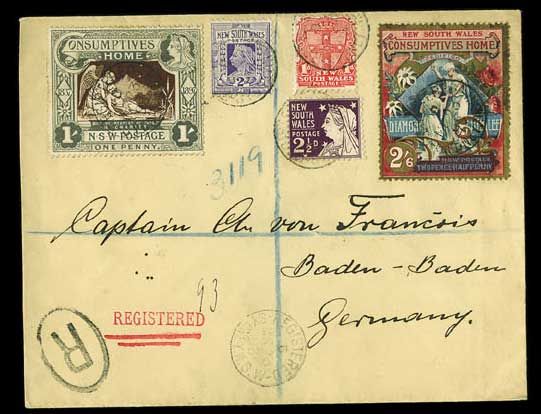 CONSUMPTIVES
HOME
1837 1897
1 N.S.W. POSTAGE 1
ONE PENNY
NEW SOUTH
WALES
2D
1D 1D
NEW
SOUTH WALES
POSTAGE
NEW
SOUTH
WALES
POSTAGE
2½D
NEW SOUTH WALES
CONSUMPTIVES HOME
DIAMOND
2/6
TWOPENCE HALFPENNY
3119
Captain von François
Baden-Baden
Germany.
93
REGISTERED
R
REGISTERED